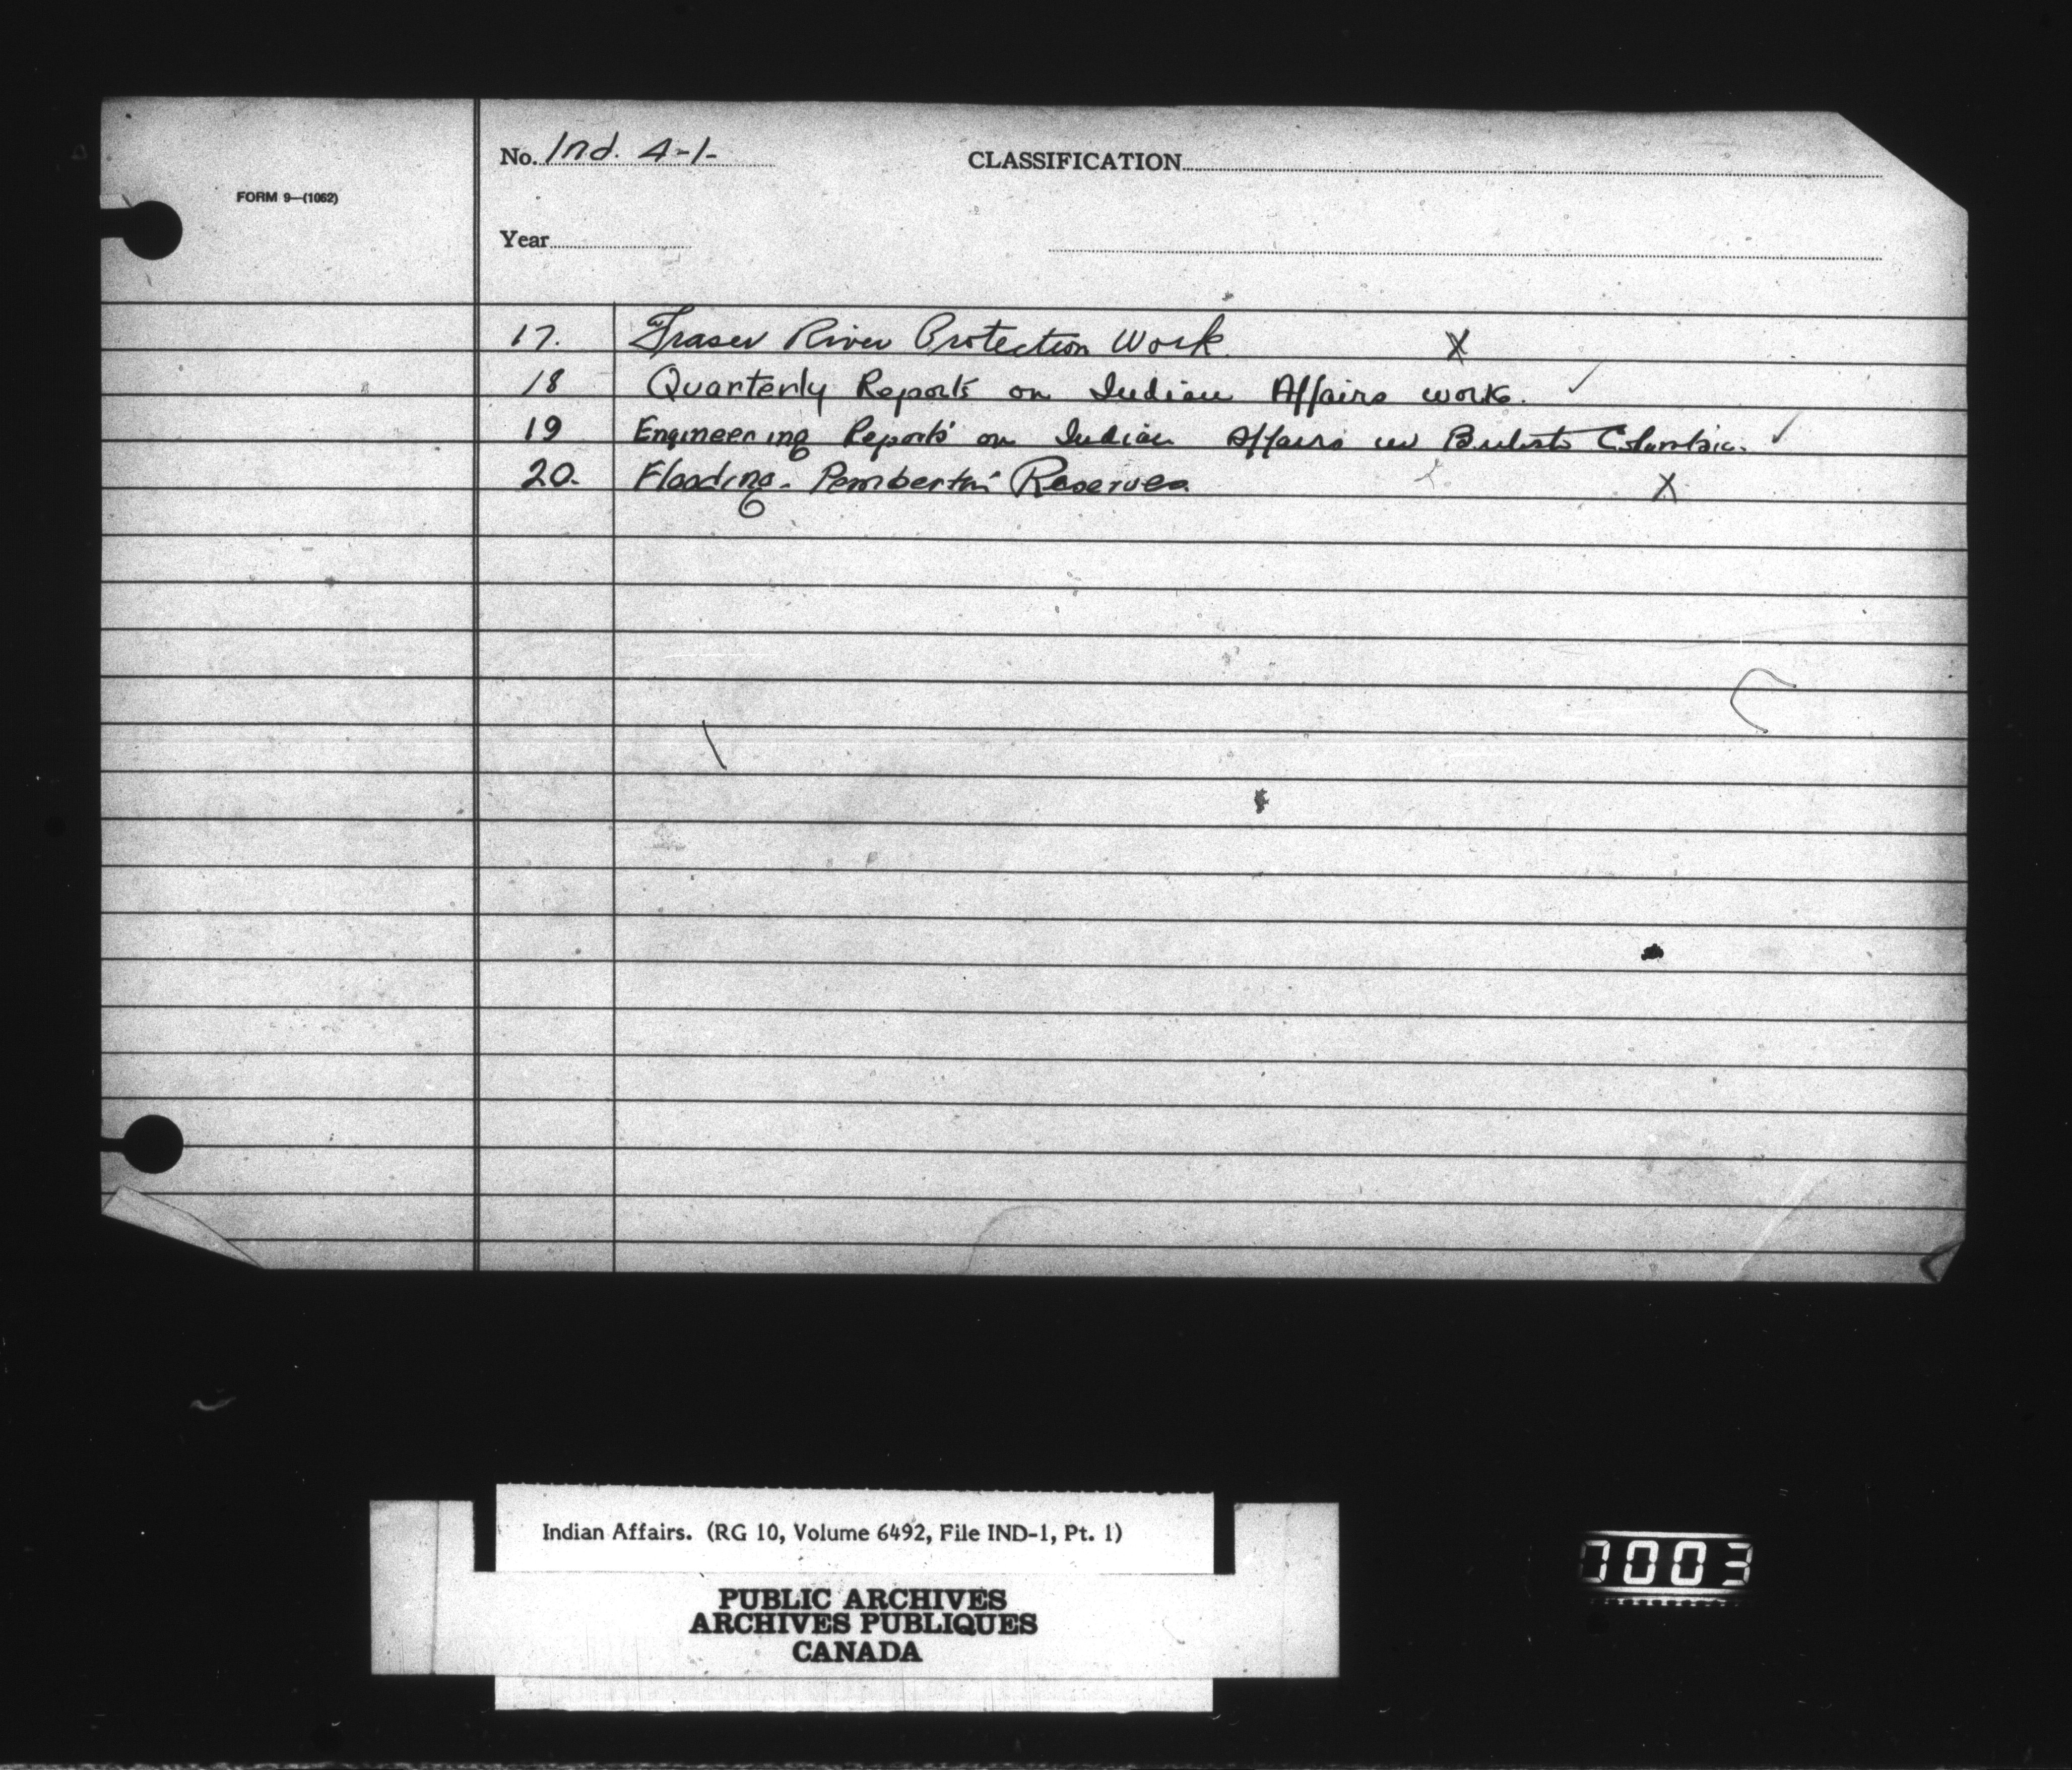 No. Ind. 4-1-
CLASSIFICATION
FORM 9—(1062)
Year
17. Fraser River Protection Work. X
18 Quarterly Reports on Indian Affairs work. ✓
19 Engineering Reports on Indian Affairs in British Columbia. ✓
20. Flooding - Pemberton Reserves X
Indian Affairs. (RG 10, Volume 6492, File IND-1, Pt. 1)
PUBLIC ARCHIVES
ARCHIVES PUBLIQUES
CANADA
0003